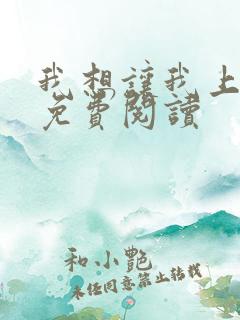 我想讓我上
免費閱讀
和小艷
未任同意禁止转载